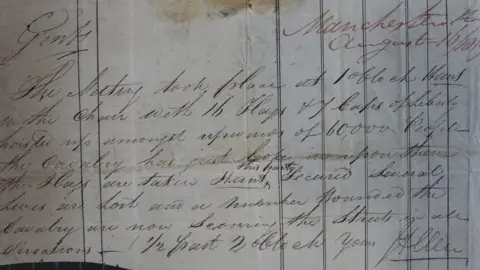 Manchester
August 16 1819
Gents
The Meeting took place at 1 oClock Hunt
in the Chair with 16 Flags & 7 Caps of liberty
hoisted up amongst upwards of 60,000 People
the Cavalry has just upon them
the Flags are taken Hunt Secured Several
lives are lost and a number Wounded the
Cavalry are now Scouring the Streets in all
directions — 1/2 past 2 oClock Yours